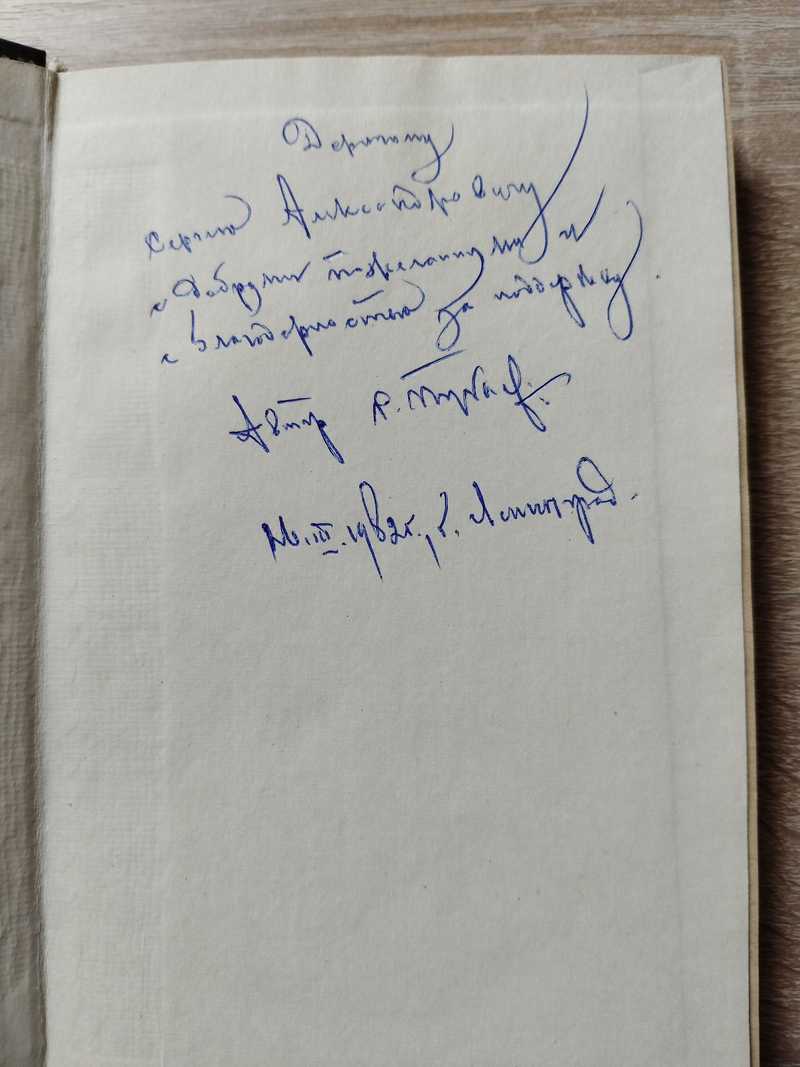 Дорогому
Сергею Александровичу
с добрыми пожеланиями и
с благодарностью за поддержку.
Автор
26.III.1982г., г. Ленинград.